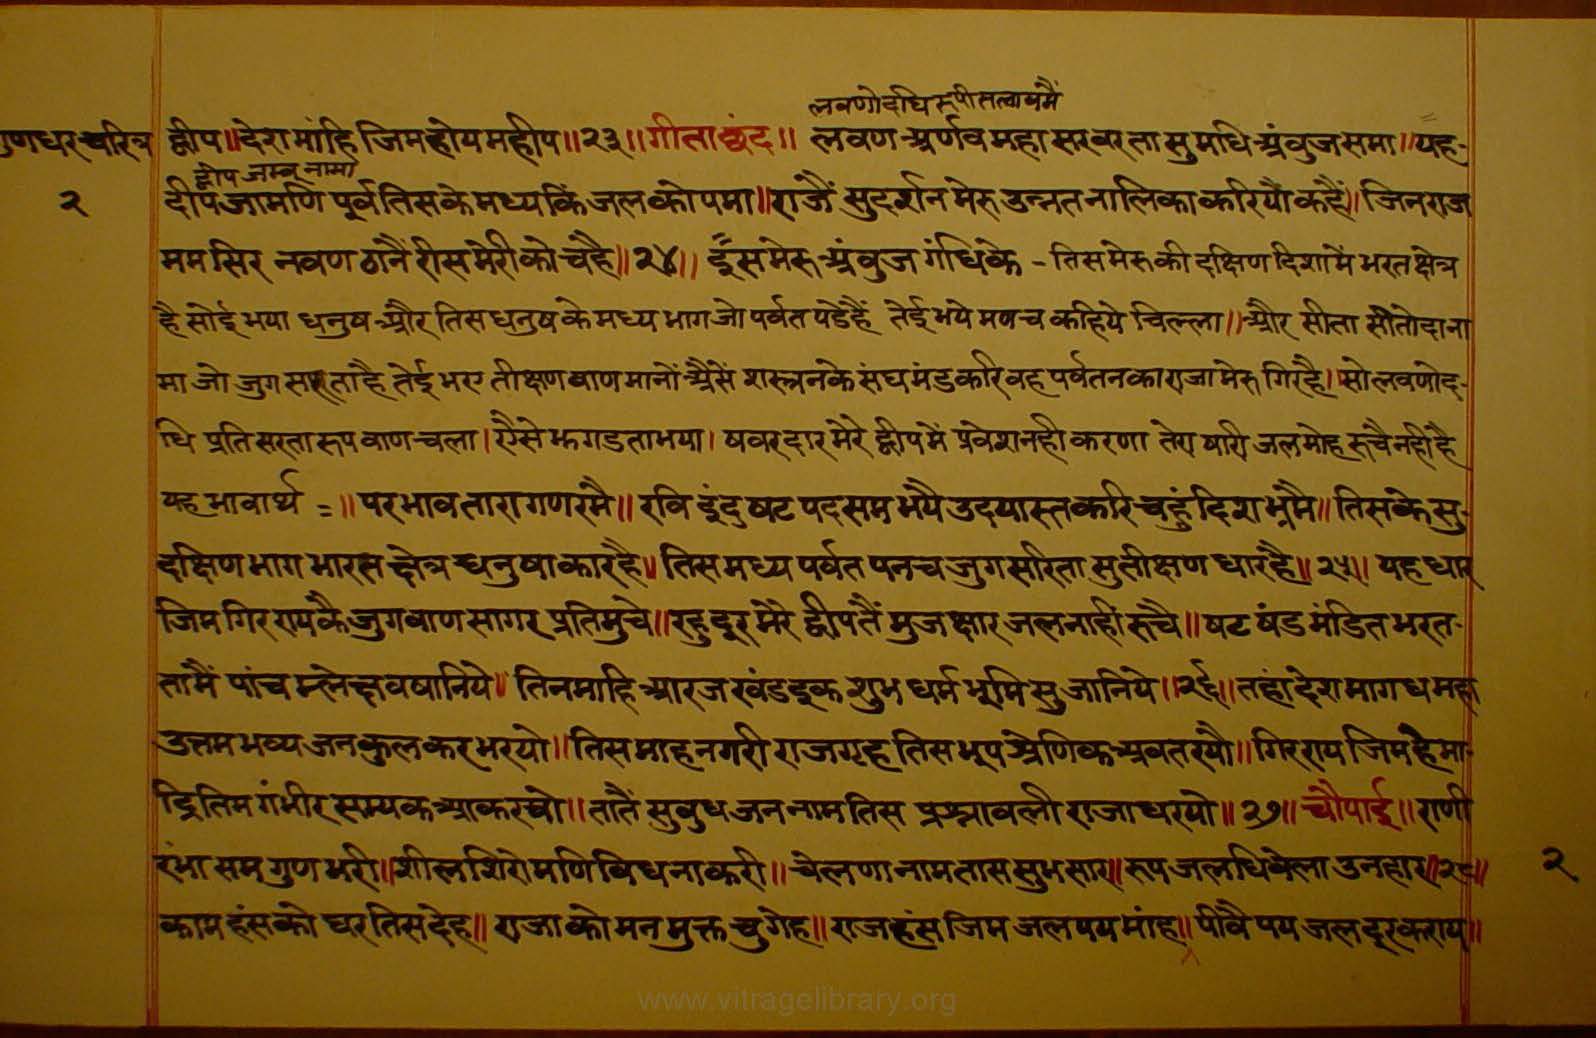 लवणोदधि रूपी तलाव मैं
गुणधर चरित्र
द्वीप॥ देश मांहि जिम होय महीप॥२३॥ गीता छंद॥ लवण अर्णव महा सरवर तासु मधि अंबुज समा॥ यह-
द्वीप जम्बू नामा
२
दीप जामणि पूर्व तिसके मध्य किंजलकोपमा॥ राजैं सुदर्शन मेरु उन्नत नालिका करि यौं कहैं॥ जिनराज
मम सिर नवण ठानैं रीस मेरी को चहै॥२४॥ इस मेरु अंबुज गंधिके - तिस मेरु की दक्षिण दिशा में भरत क्षेत्र
है सोई भया धनुष और तिस धनुष के मध्य भाग जो पर्वत पडे हैं तेई भये मणच कहिये चिल्ला॥ और सीता सीतोदा ना
मा जो जुग सारता है तेई भए तीक्षण बाण मानों अैसें शस्त्रन के संघ मंड करि वह पर्वतन का राजा मेरु गिर है। सो लवणोद-
धि प्रति सरता रूप वाण चला। एैसे झगडता भया। षवरदार मेरे द्वीप में प्रवेश नही करणा तेरा षारी जल मोह रुचै नहीं है
यह भावार्थ =॥ पर भाव तारागण रमै॥ रवि इंदु षट पद सम भंयै उदयास्त करि चहुं दिश भ्रमै॥ तिसके सु-
दक्षिण भाग भारत क्षेत्र धनुषाकार है॥ तिस मध्य पर्वत पनच जुग सरिता सुतीक्षण धार है॥२५॥ यह धार
जिम गिरराय कै जुग वाण सागर प्रति मुचे॥ रहु दूर मेरे द्वीप तैं मुज क्षार जल नाहीं रुचै॥ षट षंड मंडित भरत-
तामैं पांच म्लेछ वषानिये॥ तिन माहि आरज खंड इक शुभ धर्म भूमि सु जानिये॥२६॥ तहां देश मागध महा
उत्तम भव्य जन कुल कर भरयो॥ तिस माह नगरी राजगृह तिस भूप श्रेणिक अवतरयौ॥ गिरराय जिम हेमा-
द्रि तिम गंभीर सम्यक आकरषो॥ तातैं सुबुध जन नाम तिस प्रश्नावली राजा धरयो॥२७॥ चौपाई॥ राणी
रंभा सम गुण भरी॥ शील शिरोमणि विधना करी॥ चेलणा नाम तास सुभ सार॥ रूप जलधि वेला उनहार॥२८॥
२
काम हंस को घर तिस देह॥ राजा को मन मुक्त चुगेह॥ राजहंस जिम जल पय मांह॥ पीवै पय जल दूर कराय॥
www.vitragelibrary.org